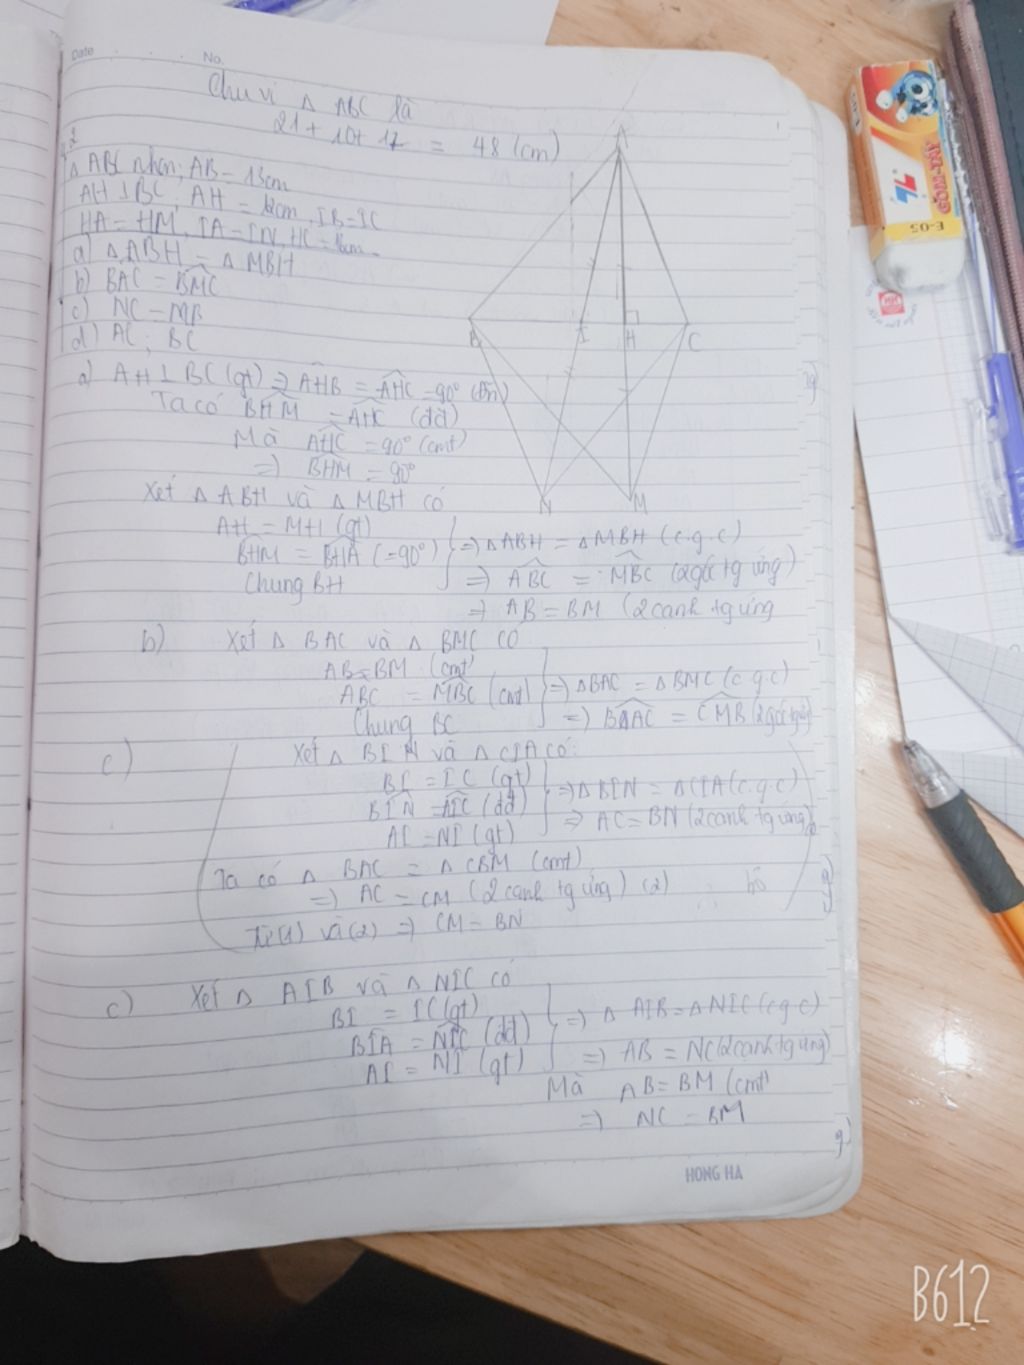 Date No.
Chu vi △ ABC là
21 + 10 + 17 = 48 (cm)
△ ABC nhọn; AB = 13cm
AH ⊥ BC, AH = 12cm, IB = IC
HA = HM, IA = IN, HC = 16cm
a) △ ABH = △ MBH
b) BAC = BMC
c) NC = MB
d) AC; BC
A
B I H C
N M
a) AH ⊥ BC (gt) => AHB = AHC = 90° (Đn)
Ta có BHM = AHC (đđ)
Mà AHC = 90° (cmt)
=> BHM = 90°
Xét △ ABH và △ MBH có
AH = MH (gt)
BHM = BHA (= 90°) } => △ ABH = △ MBH (c.g.c)
Chung BH => ABC = MBC (2 góc tg ứng)
=> AB = BM (2 cạnh tg ứng
b) Xét △ BAC và △ BMC có
AB = BM (cmt)
ABC = MBC (cmt) } => △ BAC = △ BMC (c.g.c)
Chung BC => BAC = CMB (2 góc tg ứng)
c) Xét △ BIN và △ CIA có:
BI = IC (gt)
BIN = AIC (đđ) } => △ BIN = △ CIA (c.g.c)
AI = NI (gt) => AC = BN (2 cạnh tg ứng)
Ta có △ BAC = △ CBM (cmt)
=> AC = CM (2 cạnh tg ứng) (2) bỏ
Từ (1) và (2) => CM = BN
c) Xét △ AIB và △ NIC có
BI = IC (gt)
BIA = NIC (đđ) } => △ AIB = △ NIC (c.g.c)
AI = NI (gt) => AB = NC (2 cạnh tg ứng)
Mà AB = BM (cmt)
=> NC = BM
HONG HA
GÔM-TẨY
E-05
B612